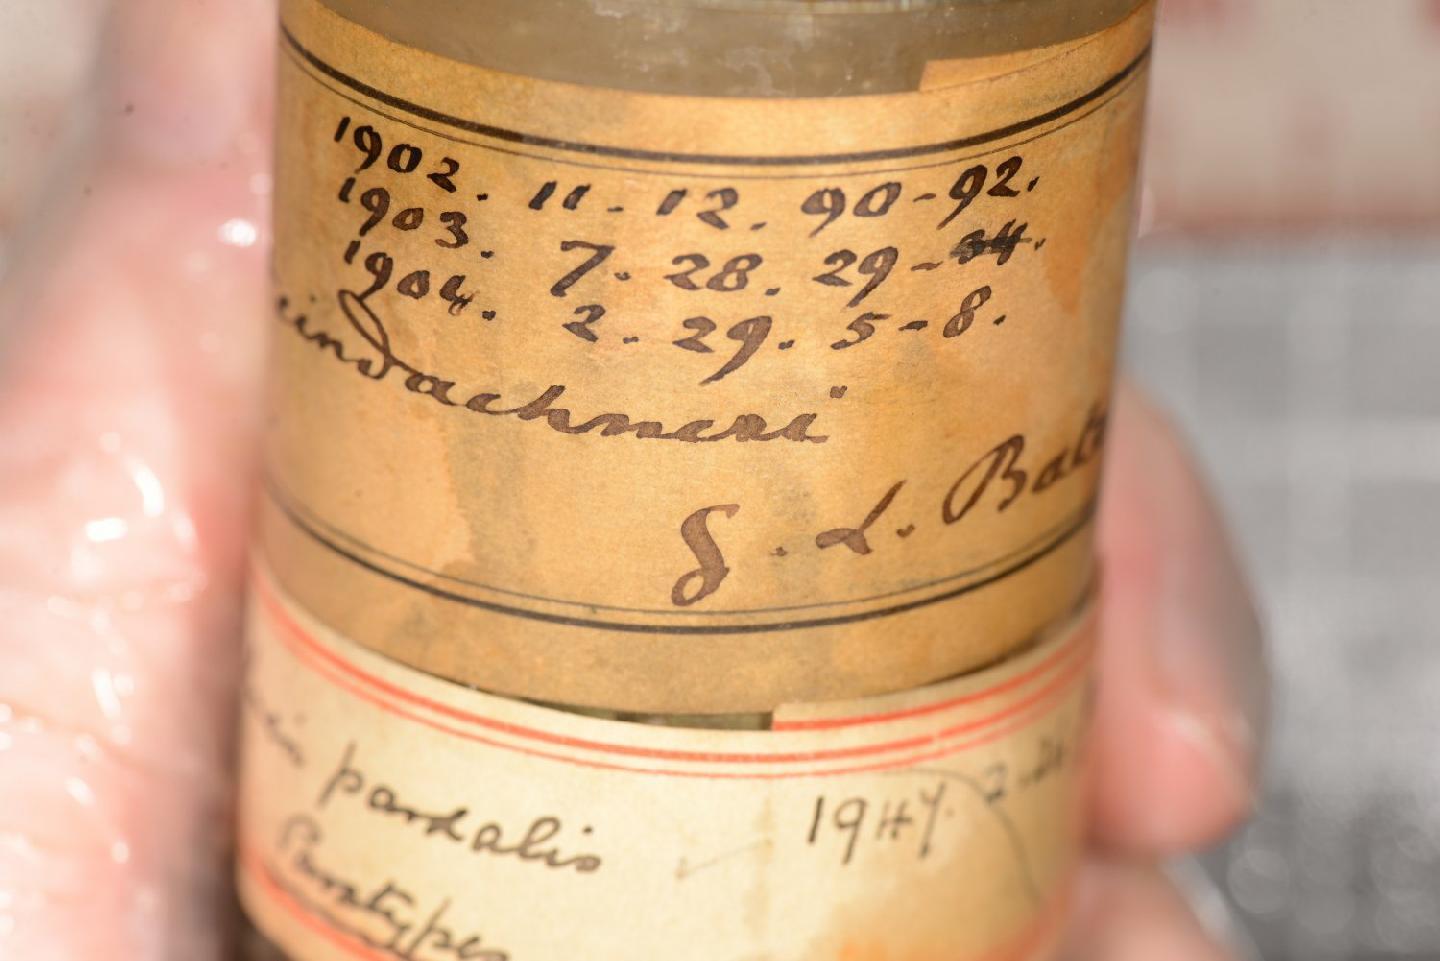 1902. 11-12. 90-92.
1903. 7. 28. 29-34.
1904. 2. 29. 5-8.
eindachneri
G. L. Bate
pardalis
1947. 2-
Paratypes